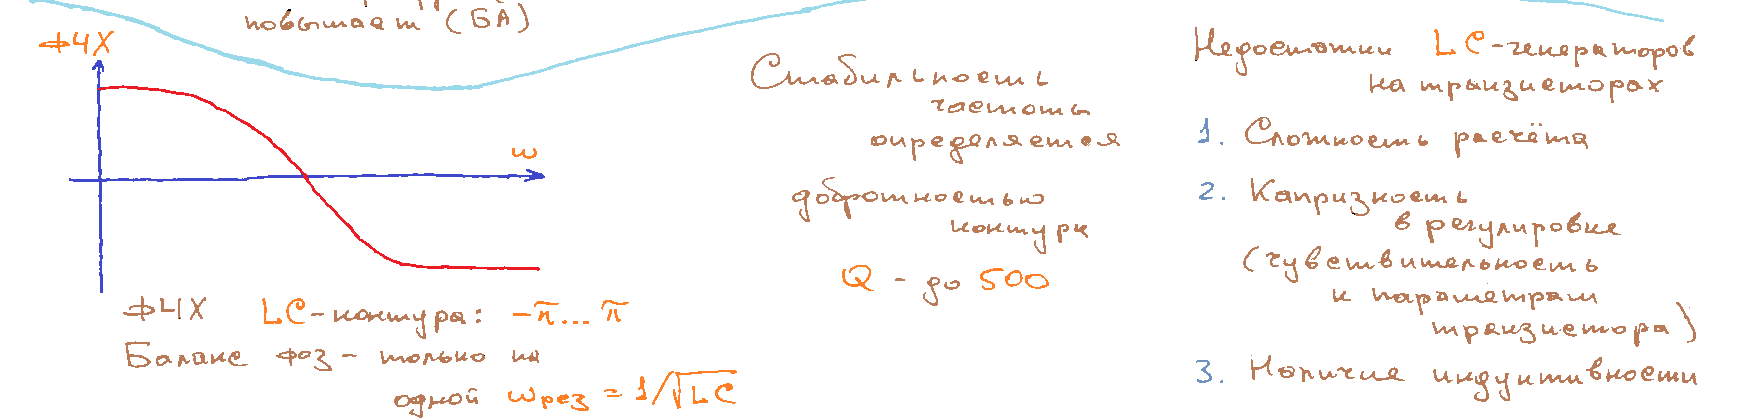 повышает (БА)
ФЧХ
ω
ФЧХ LC-контура: -π...π
Баланс фаз - только на
одной ωрез = 1/√LC
Стабильность
частоты
определяется
добротностью
контура
Q - до 500
Недостатки LC-генераторов
на транзисторах
1. Сложность расчёта
2. Капризность
в регулировке
(чувствительность
к параметрам
транзистора)
3. Наличие индуктивности